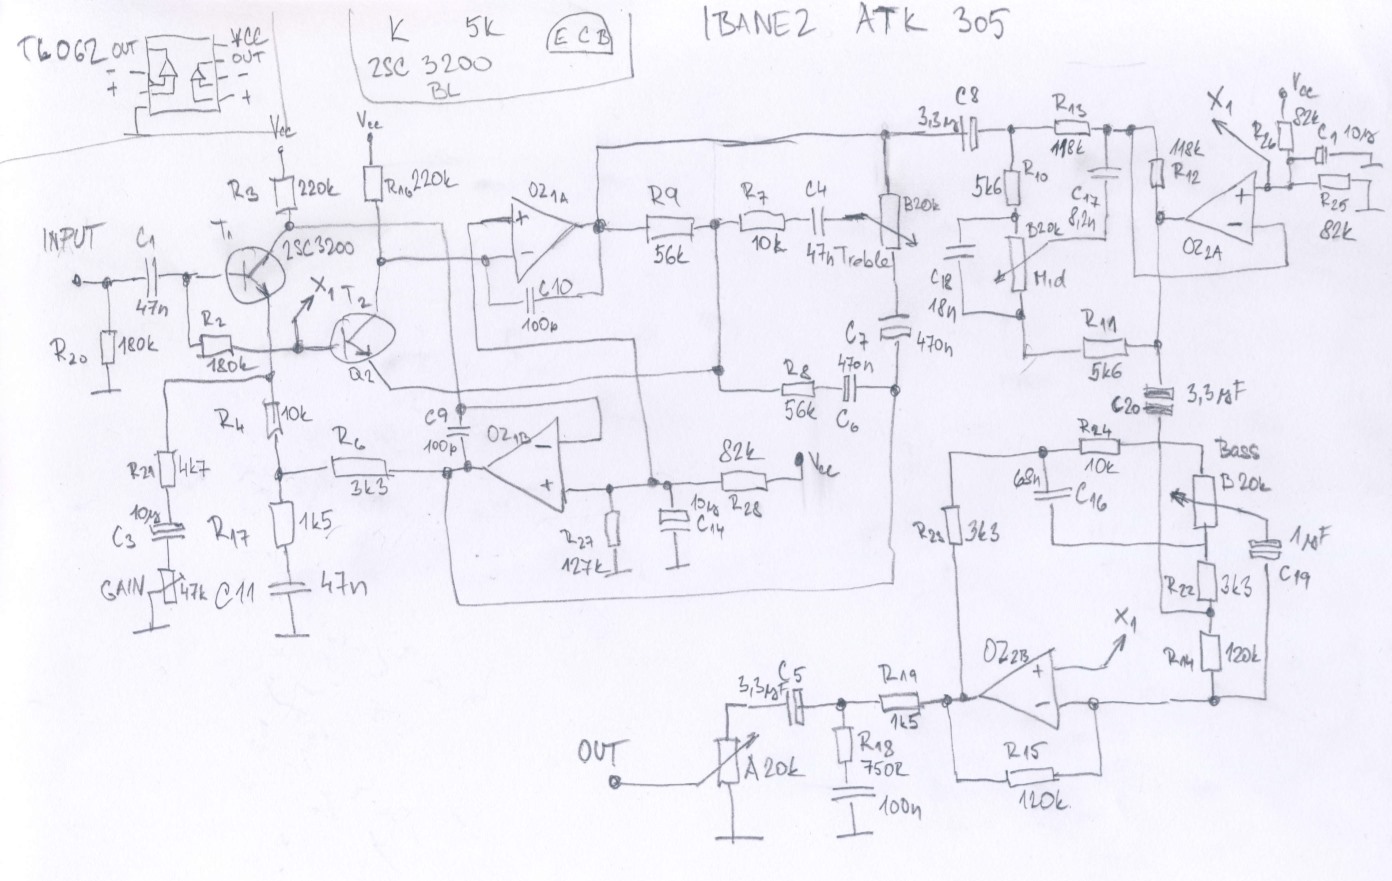 IBANEZ ATK 305
TL062
OUT
-
+
VCC
OUT
-
+
K 5k
2SC 3200
BL
E C B
Vcc
R3 220k
Vcc
R16 220k
INPUT
C1
47n
T1
2SC3200
R20 180k
R2
180k
X1
T2
Q2
OZ1A
+
-
C10
100p
R9
56k
R7
10k
C4
47n
Treble
B20k
C7
470n
R8
56k
470n
C6
C8
3,3µ
R13
118k
R10
5k6
C17
8,2n
B20k
Mid
C18
18n
R11
5k6
118k
R12
OZ2A
+
-
X1
Vcc
82k
R26
10µ
R25
82k
3,3µF
C20
R4 10k
R6
3k3
C9
100p
OZ1B
-
+
82k
R28
Vcc
10µ
C14
R27
127k
R21 4k7
10µ
C3
GAIN 47k
R17 1k5
C11 47n
R24
10k
68n
C16
R23 3k3
Bass
B20k
1µF
C19
R22 3k3
R14 120k
X1
OZ2B
+
-
R15
120k
R19
1k5
C5
3,3µF
R18
750R
100n
A20k
OUT